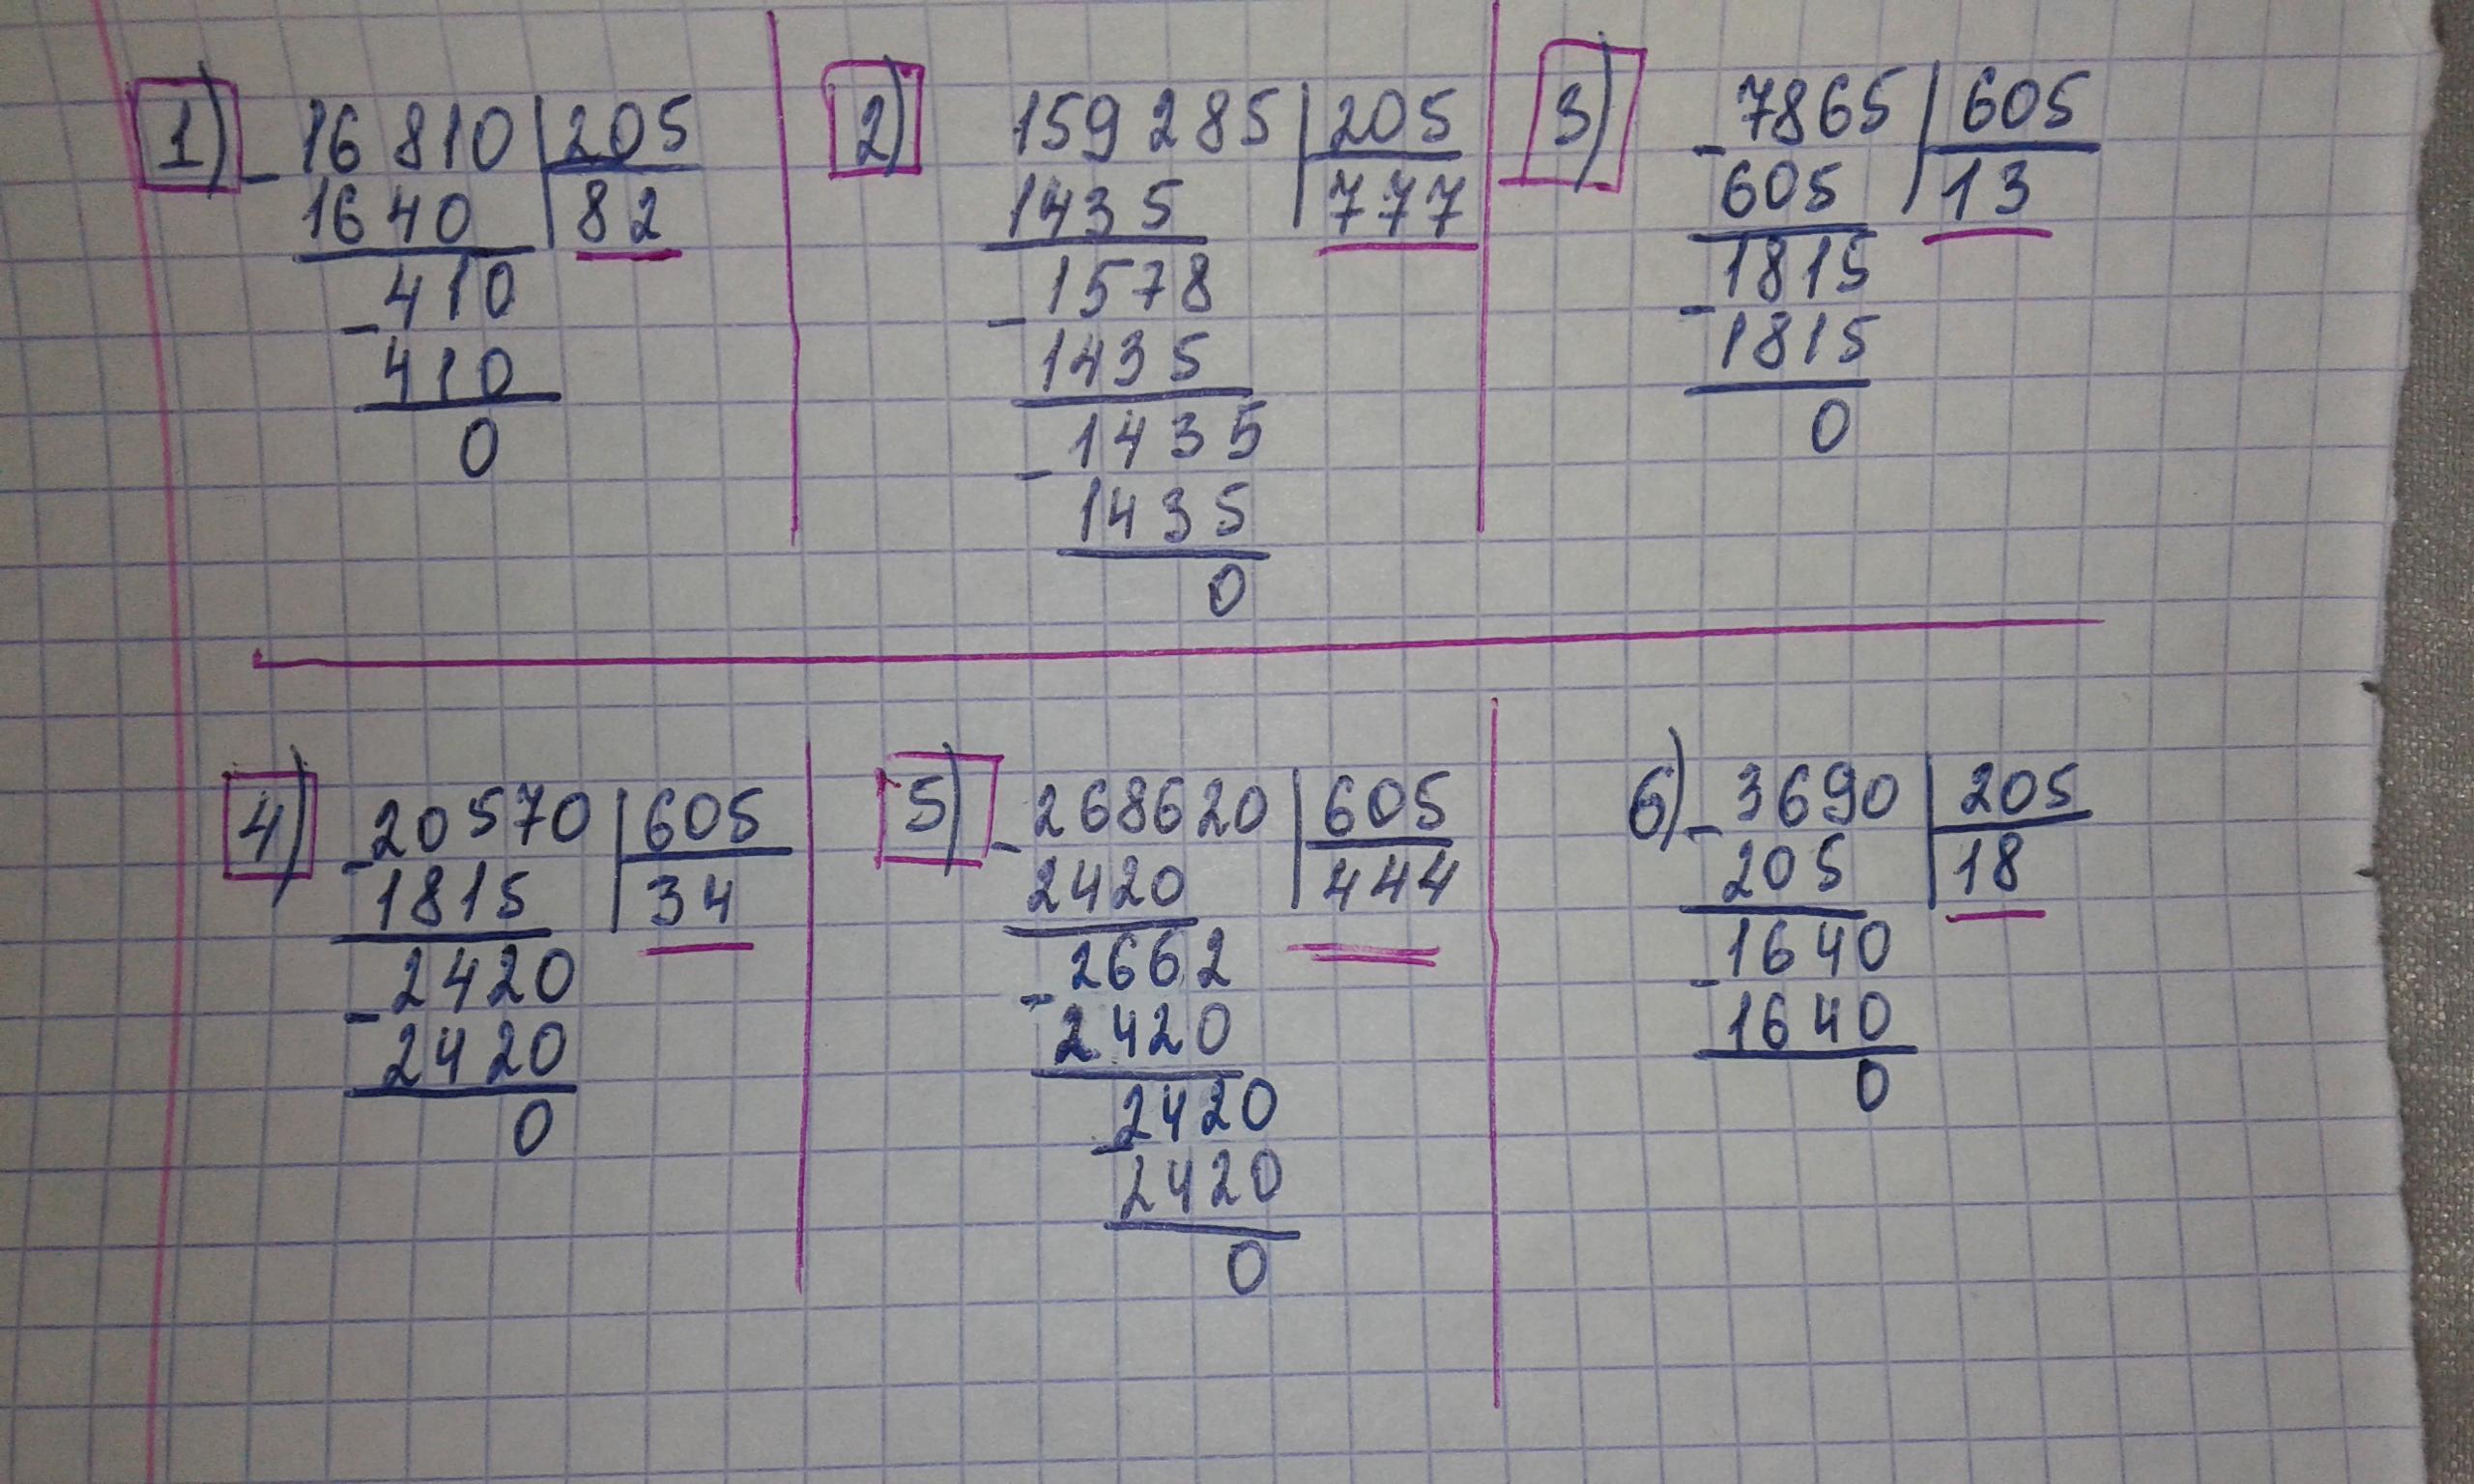 1) - 16 810 | 205
1640 | 82
410
- 410
0
2) 159 285 | 205
1435 | 777
- 1578
1435
- 1435
1435
0
3) - 7865 | 605
605 | 13
- 1815
1815
0
4) - 20570 | 605
1815 | 34
- 2420
2420
0
5) - 268620 | 605
2420 | 444
- 2662
2420
- 2420
2420
0
6) - 3690 | 205
205 | 18
- 1640
1640
0